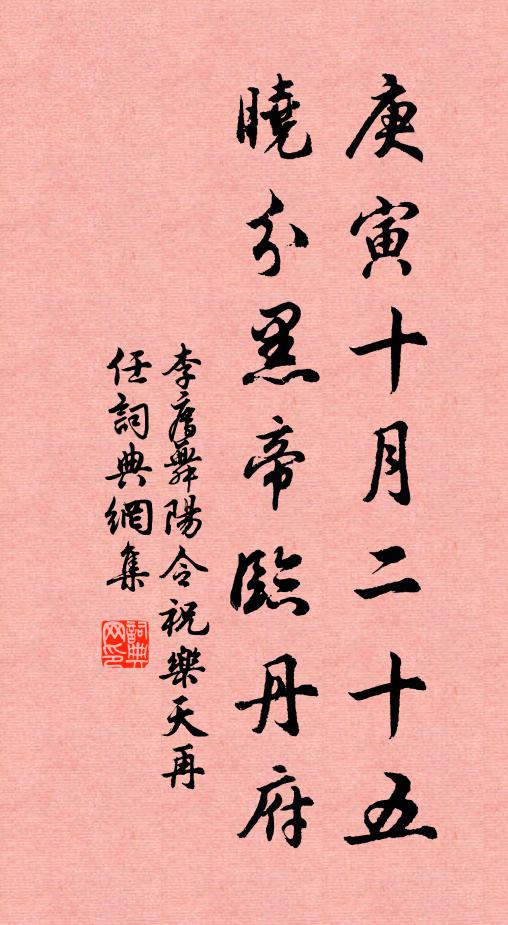 庚寅十月二十五
曉分黑帝臨丹府
李廌舞陽令祝樂天再
任詞典網集
詞典网印